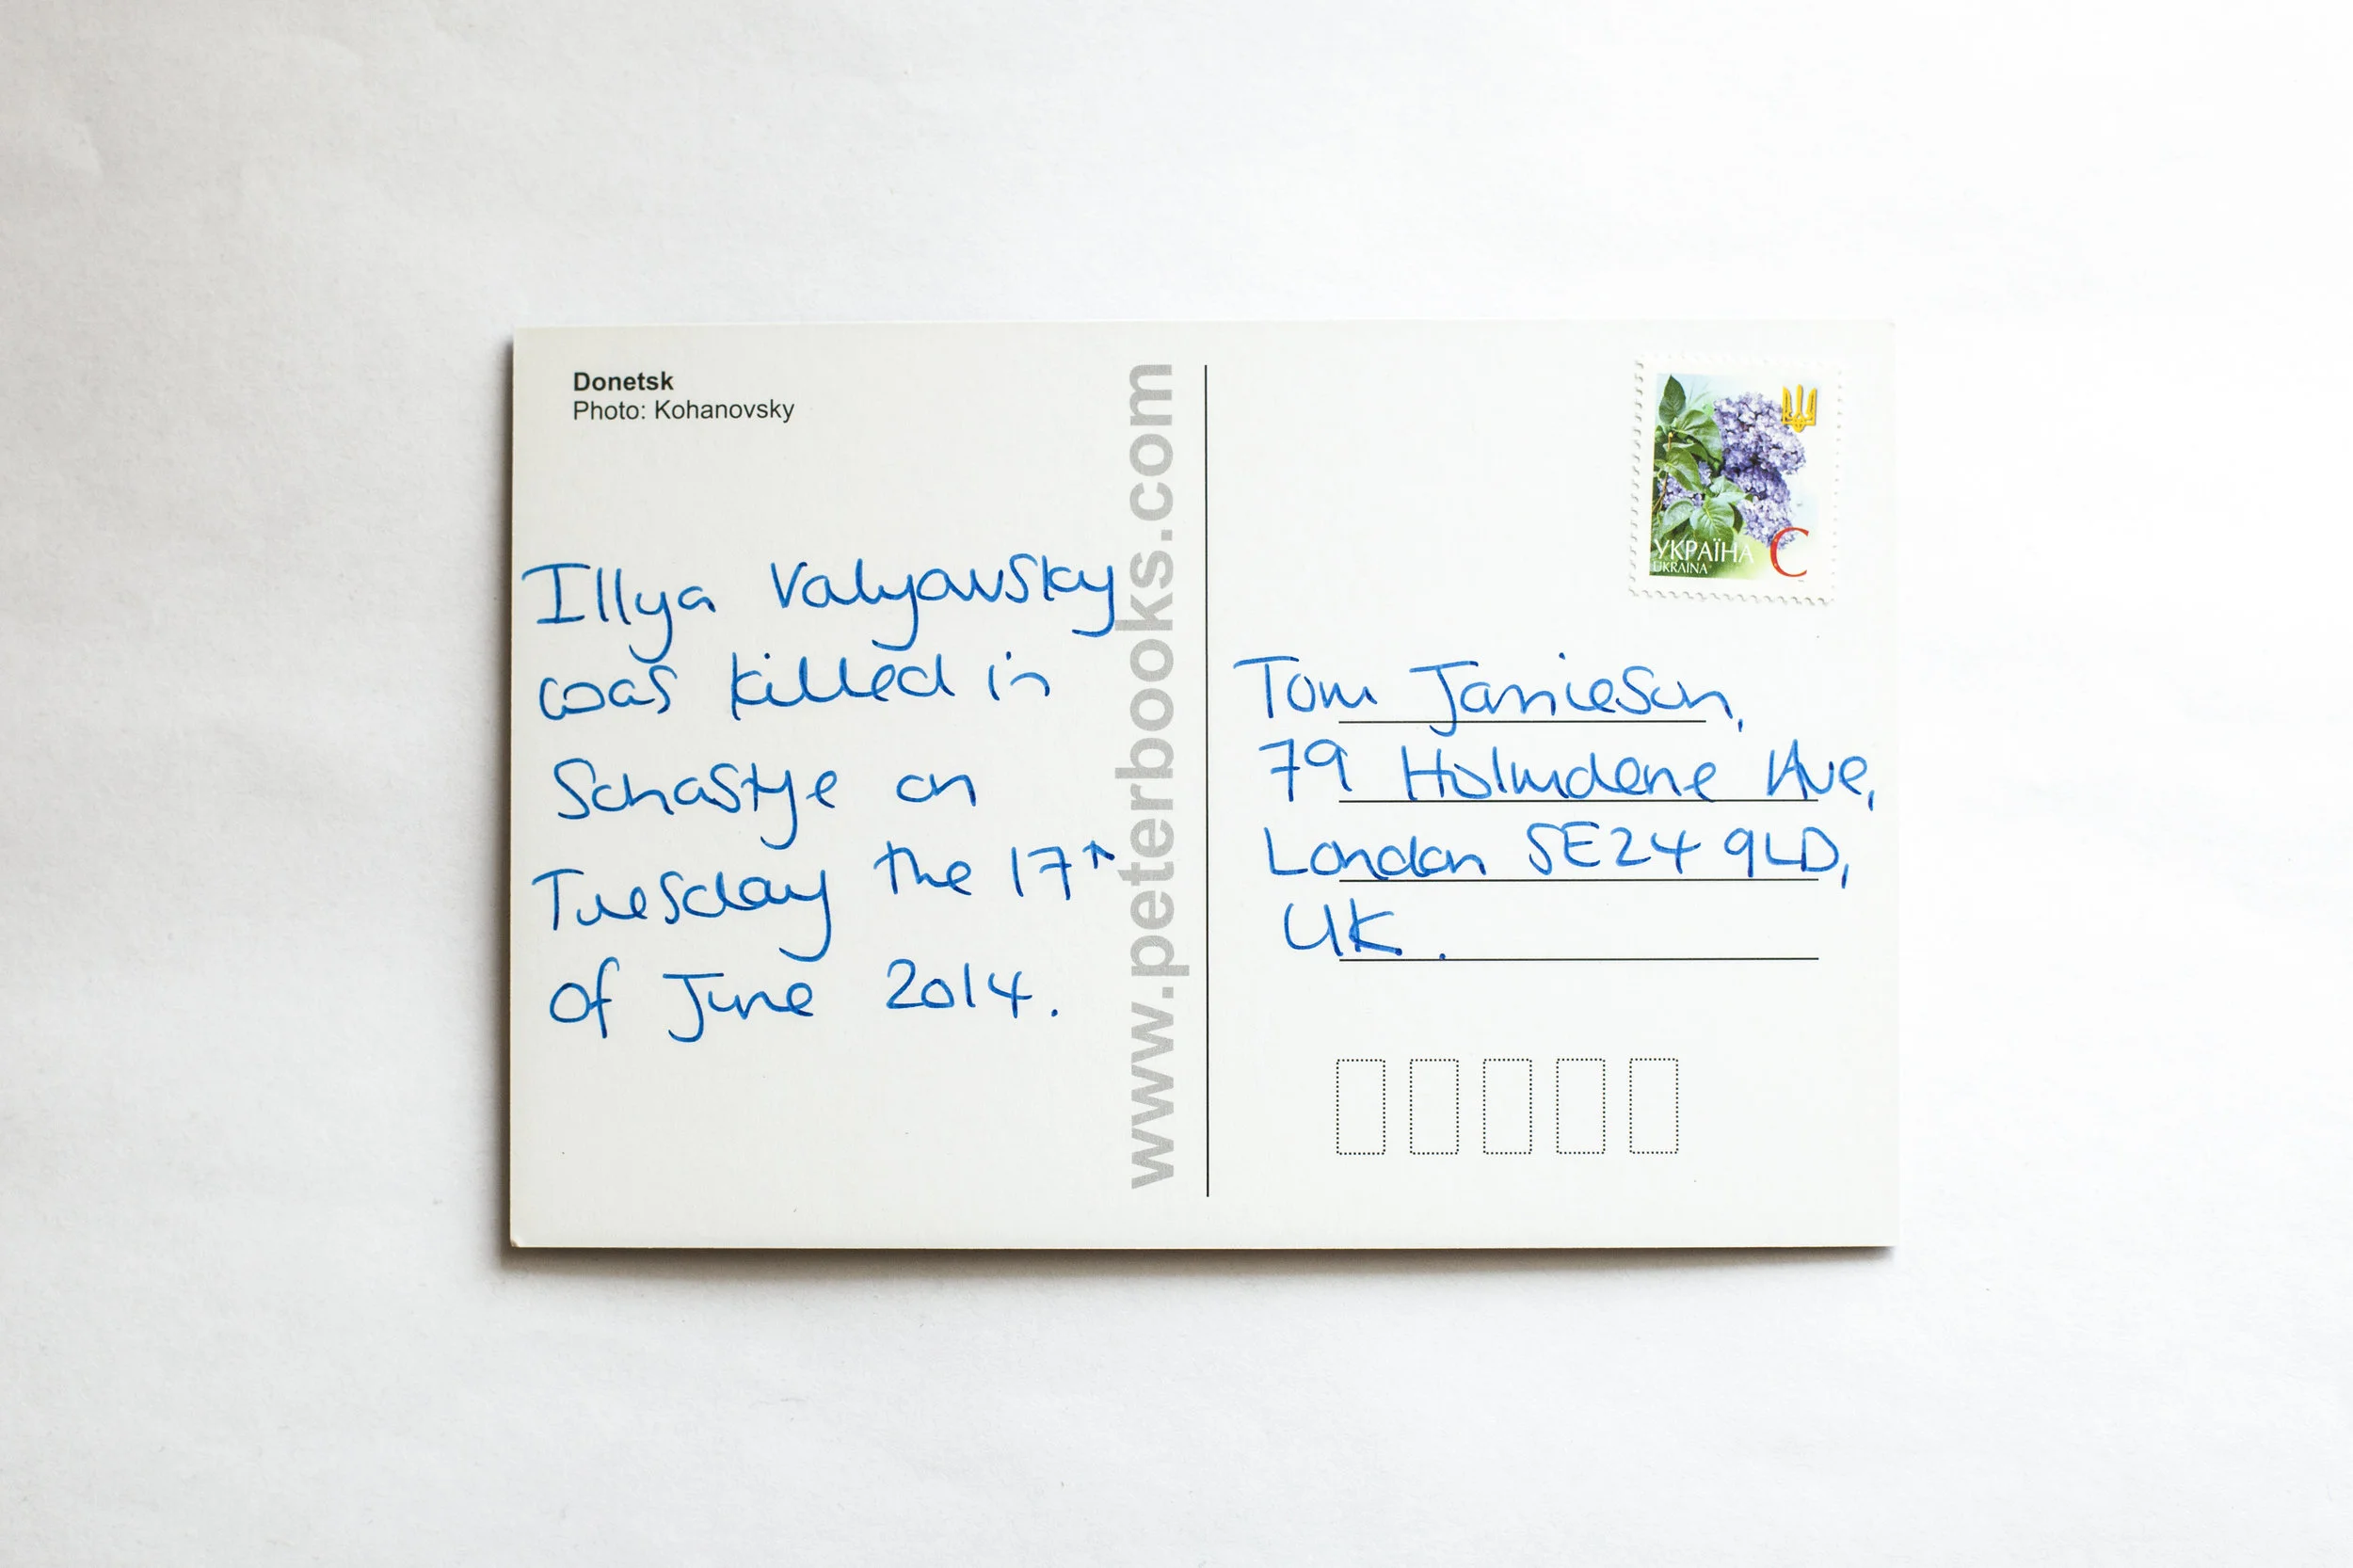 Donetsk
Photo: Kohanovsky
Illya Valyavsky
was killed in
Schastye on
Tuesday the 17th
of June 2014.
www.peterbooks.com
УКРАЇНА C
UKRAINA
Tom Jamieson,
79 Holmdene Ave,
London SE24 9LD,
UK.